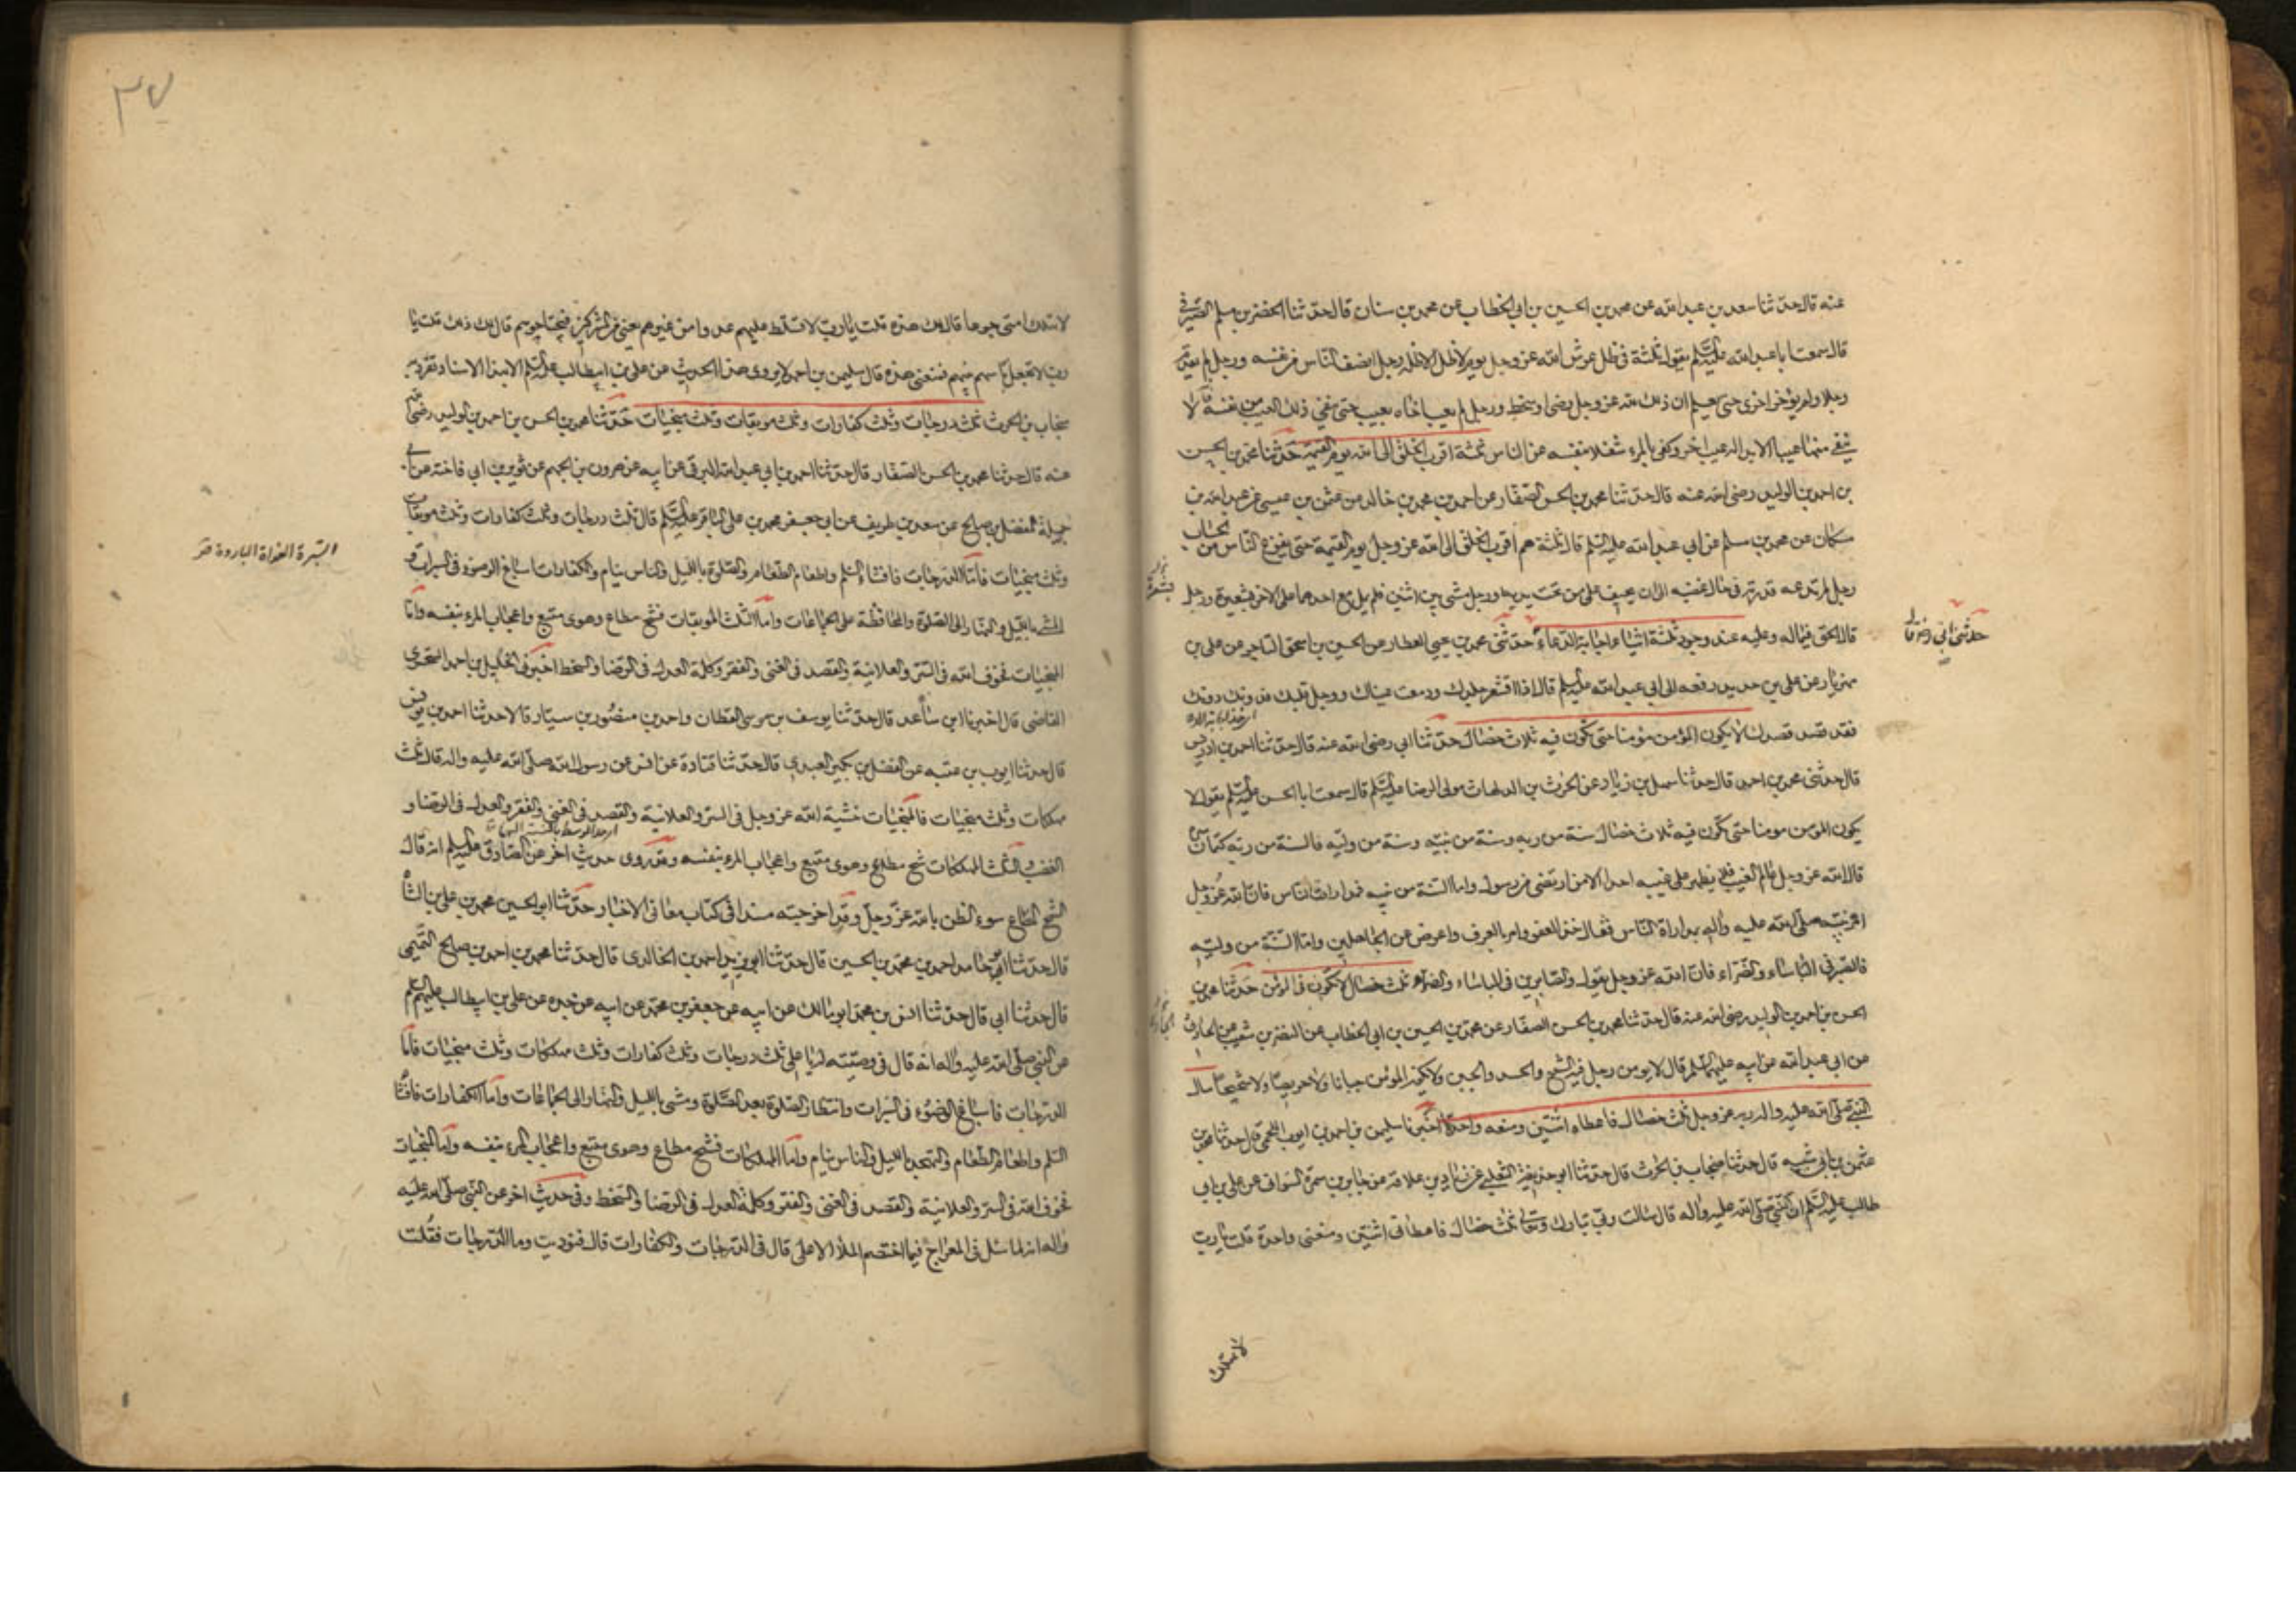 عنه قال حدثنا سعد بن عبد الله عن محمد بن الحسين بن ابي الخطاب عن محمد بن سنان قال حدثنا الخضر بن مسلم الصيرفي
قال سمعت ابا عبد الله عليه السلم يقول ثلثة في ظل عرش الله عز وجل يوم لا ظل الا ظله رجل انصف الناس من نفسه ورجل لم يقدم
رجلا ولم يؤخر اخرى حتى يعلم ان ذلك لله عز وجل رضى او سخط ورجل لم يعب اخاه بعيب حتى ينفي ذلك العيب من نفسه فانه لا
ينفي منها عيبا الا بدا له عيب اخر وكفى بالمرء شغلا بنفسه عن الناس ثلثة اقرب الخلق الى الله يوم القيمة حدثنا محمد بن الحسن
بن احمد بن الوليد رضى الله عنه قال حدثنا محمد بن الحسن الصفار عن احمد بن محمد بن خالد عن عثمن بن عيسى عن عبد الله بن
مسكان عن محمد بن مسلم عن ابي عبد الله عليه السلم قال ثلثة هم اقرب الخلق الى الله عز وجل يوم القيمة حتى يفرغ الناس من الحساب
رجل لم تدعه قدرته في حال غضبه الى ان يحيف على من تحت يديه ورجل مشى بين اثنين فلم يمل مع احدهما على الاخر بشعيرة ورجل
قال الحق فيما له وعليه عند وجود ثلثة اشياء اجابة الدعاء حدثني محمد بن يحيى العطار عن الحسين بن اسحق التاجر عن على بن
حدثني ابي رضه قال
مهزيار عن على بن حديد رفعه الى ابي عبد الله عليه السلم قال اذا اقشعر جلدك ودمعت عيناك ووجل قلبك فدونك دونك
فقد قصد قصدك لا يكون المؤمن مؤمنا حتى تكون فيه ثلاث خصال حدثنا ابي رضى الله عنه قال حدثنا احمد بن ادريس
قال حدثني محمد بن احمد قال حدثنا سهل بن زياد عن الحرث بن الدلهاث مولى الرضا عليه السلم قال سمعت ابا الحسن عليه السلم يقول لا
يكون المؤمن مومنا حتى تكون فيه ثلاث خصال سنة من ربه وسنة من نبيه وسنة من وليه فالسنة من ربه كتمان سره
قال الله عز وجل عالم الغيب فلا يظهر على غيبه احدا الا من ارتضى من رسول واما السنة من نبيه فمداراة الناس فان الله عز وجل
امر نبيه صلى الله عليه واله بمداراة الناس فقال خذ العفو وامر بالعرف واعرض عن الجاهلين واما السنة من وليه
فالصبر في الباساء والضراء فان الله عز وجل يقول والصابرين في الباساء والضراء ثلث خصال لا تكون في المؤمن حدثنا محمد بن
الحسن بن احمد بن الوليد رضى الله عنه قال حدثنا محمد بن الحسن الصفار عن محمد بن الحسين بن ابي الخطاب عن النضر بن شعيب عن الحارثي
عن ابي عبد الله عن ابيه عليهما السلم قال لا يومن رجل فيه الشح والحسد والجبن ولا يكون المؤمن جبانا ولا حريصا ولا شحيحا سال
النبي صلى الله عليه واله ربه عز وجل ثلث خصال فاعطاه اثنتين ومنعه واحدة اخبرنا سليمن بن احمد بن ايوب اللخمي قال حدثنا محمد بن
عثمن بن ابي شيبه قال حدثنا منجاب بن الحرث قال حدثنا ابو حذيفة الثعلبي عن زياد بن علاقة عن جابر بن سمرة السوائي عن على بن ابي
طالب عليه السلم ان النبي صلى الله عليه واله قال سالت ربي تبارك وتعالى ثلث خصال فاعطاني اثنتين ومنعني واحدة قلت يارب
لا تهلك
٣٧
لا تهلك امتى جوعا قال لك هذه قلت يارب لا تسلط عليهم عدوا من غيرهم يعني من المشركين فيجتاحوهم قال لك ذلك قلت يا
رب لا تجعل باسهم بينهم فمنعني هذه قال سليمن بن احمد لا يروى هذا الحديث عن على بن ابيطالب عليه السلم الا بهذا الاسناد تفرد به
منجاب بن الحرث ثلث درجات وثلث كفارات وثلث موبقات وثلث منجيات حدثنا محمد بن الحسن بن احمد بن الوليد رضى الله
عنه قال حدثنا محمد بن الحسن الصفار قال حدثنا احمد بن ابي عبد الله البرقي عن ابيه عن هرون بن الجهم عن ثوير بن ابي فاخته عن ابي
جميلة المفضل بن صالح عن سعد بن طريف عن ابي جعفر محمد بن على الباقر عليه السلم قال ثلث درجات وثلث كفارات وثلث موبقات
السبرة الغداة الباردة
وثلث منجيات فاما الدرجات فافشاء السلم واطعام الطعام والصلوة بالليل والناس نيام والكفارات اسباغ الوضوء في السبرات و
المشي بالليل والنهار الى الصلوة والمحافظة على الجماعات واما الثلث الموبقات فشح مطاع وهوى متبع واعجاب المرء بنفسه واما
المنجيات فخوف الله في السر والعلانية والقصد في الغنى والفقر وكلمة العدل في الرضا والسخط اخبرني الخليل بن احمد السجزي
القاضي قال اخبرنا ابن صاعد قال حدثنا يوسف بن موسى القطان واحمد بن منصور بن سيار قالا حدثنا احمد بن يونس
قال حدثنا ايوب بن عتبه عن الفضل بن بكير العبدي قال حدثنا قتادة عن انس عن رسول الله صلى الله عليه واله قال ثلث
مهلكات وثلث منجيات فالمنجيات خشية الله عز وجل في السر والعلانية والقصد في الغنى والفقر والعدل في الرضا و
الغضب والثلث المهلكات شح مطاع وهوى متبع واعجاب المرء بنفسه وقد روى حديث اخر عن الصادق عليه السلم انه قال
الشح المطاع سوء الظن بالله عز وجل وقد اخرجته مسندا في كتاب معاني الاخبار حدثنا ابو الحسين محمد بن على بن الشاه
قال حدثنا ابو حامد احمد بن محمد بن الحسين قال حدثنا ابو يزيد احمد بن الخالدي قال حدثنا محمد بن احمد بن صالح التميمي
قال حدثنا ابي قال حدثنا انس بن محمد ابو مالك عن ابيه عن جعفر بن محمد عن ابيه عن جده عن على بن ابيطالب عليهم السلم
عن النبي صلى الله عليه واله انه قال في وصيته له يا على ثلث درجات وثلث كفارات وثلث مهلكات وثلث منجيات فاما
الدرجات فاسباغ الوضوء في السبرات وانتظار الصلوة بعد الصلوة ومشى بالليل والنهار الى الجماعات واما الكفارات فافشاء
السلم واطعام الطعام والتهجد بالليل والناس نيام واما المهلكات فشح مطاع وهوى متبع واعجاب المرء بنفسه واما المنجيات
فخوف الله في السر والعلانية والقصد في الغنى والفقر وكلمة العدل في الرضا والسخط وفي حديث اخر عن النبي صلى الله عليه
واله انه لما سئل في المعراج فيما اختصم الملاء الاعلى قال في الدرجات والكفارات قال فنوديت وما الدرجات فقلت